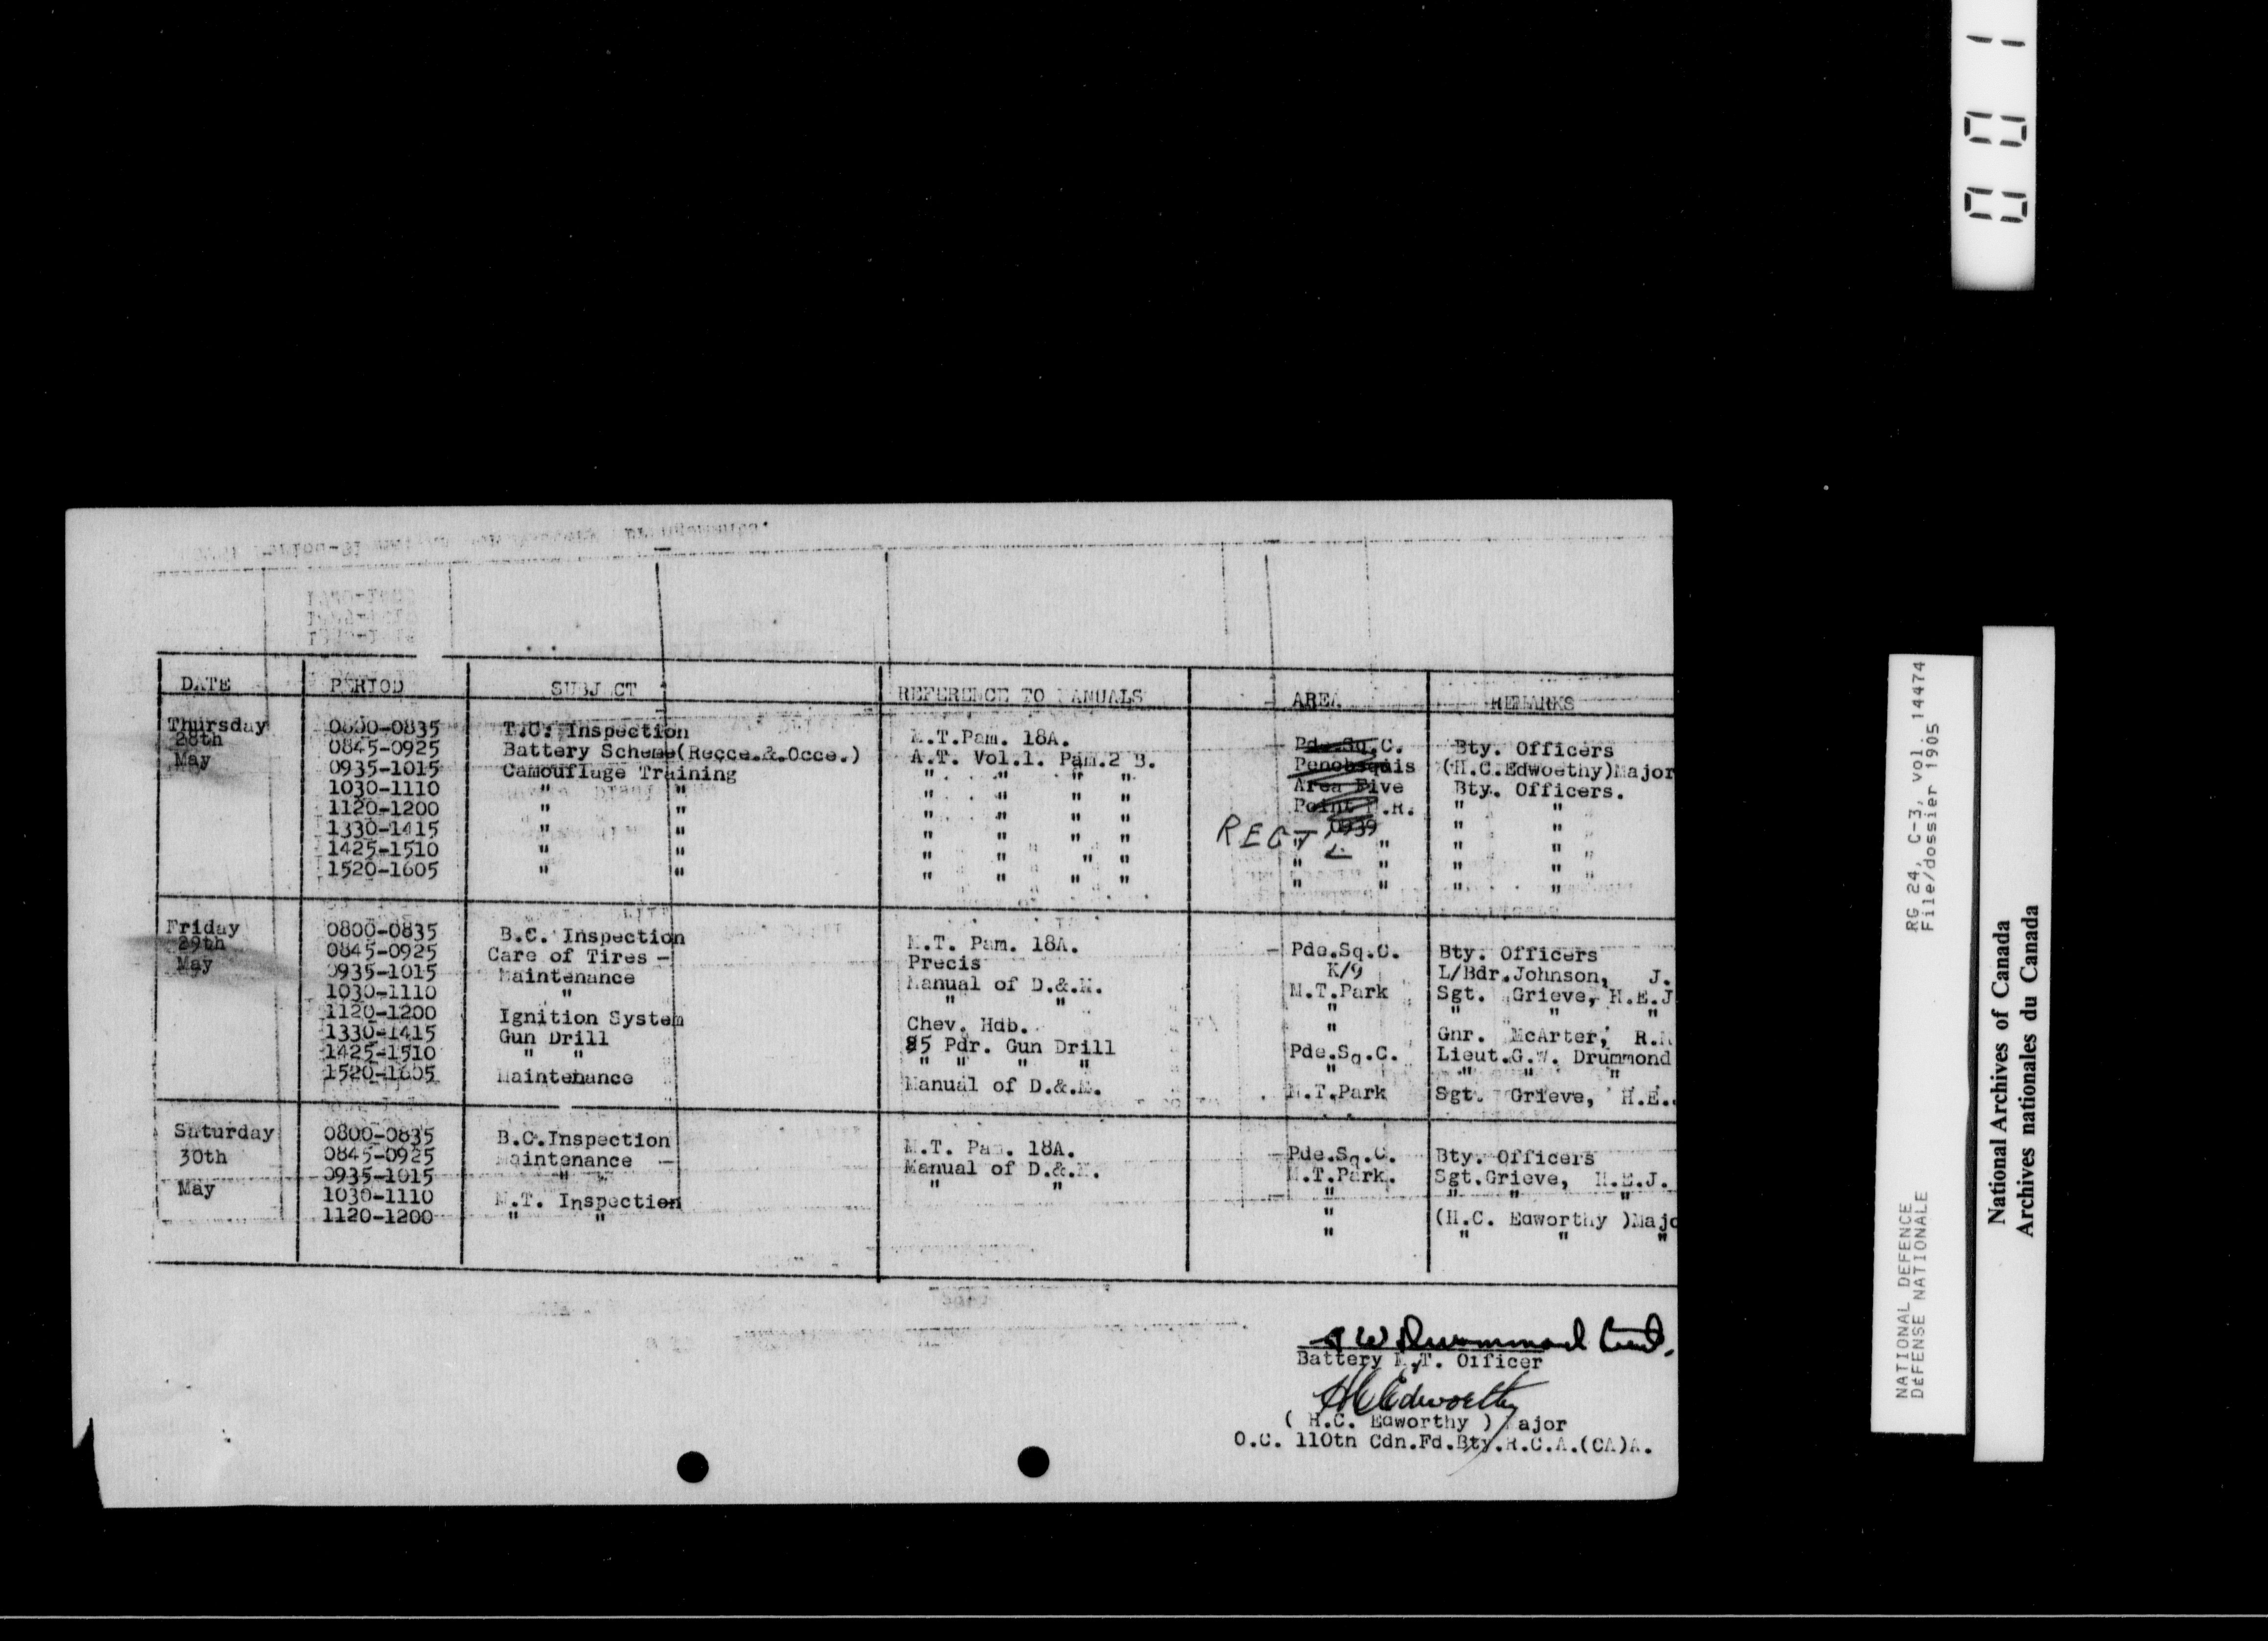 DATE PERIOD SUBJ CT REFERENCE TO MANUALS AREA REMARKS
Thursday 0800-0835 T.C. Inspection M.T.Pam. 18A. Pde.Sq.C. Bty. Officers
28th 0845-0925 Battery Scheme(Recce.&.Occe.) A.T. Vol.1. Pam.2 B. Penobsquis (H.C.Edwoethy)Major
May 0935-1015 Camouflage Training " " " " Area Five Bty. Officers.
1030-1110 " " " " " " Point M.R. " "
1120-1200 " " " " " " 0939 " "
1330-1415 " " " " " " " " " "
1425-1510 " " " " " " " " " "
1520-1605 " " " " " " " " " "
Friday 0800-0835 B.C. Inspection M.T. Pam. 18A. Pde.Sq.C. Bty. Officers
29th 0845-0925 Care of Tires - Precis K/9 L/Bdr.Johnson, J.
May 0935-1015 Maintenance Manual of D.&.M. M.T.Park Sgt. Grieve, H.E.J
1030-1110 " " " " " " "
1120-1200 Ignition System Chev. Hdb. " Gnr. McArter, R.
1330-1415 Gun Drill 25 Pdr. Gun Drill Pde.Sq.C. Lieut.G.W. Drummond
1425-1510 " " " " " " " " " "
1520-1605 Maintenance Manual of D.&.M. M.T.Park Sgt. Grieve, H.E.
Saturday 0800-0835 B.C.Inspection M.T. Pam. 18A. Pde.Sq.C. Bty. Officers
30th 0845-0925 Maintenance - Manual of D.&.M. M.T.Park. Sgt.Grieve, H.E.J.
0935-1015 " " " " " " "
May 1030-1110 M.T. Inspection " (H.C. Edworthy )Majo
1120-1200 " " " " " "
G W Drummond Lieut.
Battery M.T. Officer
HC Edworthy
( H.C. Edworthy ) Major
O.C. 110th Cdn.Fd.Bty.R.C.A.(CA)A.
001
RG 24, C-3, vol. 14474
File/dossier 1905
NATIONAL DEFENCE
DÉFENSE NATIONALE
National Archives of Canada
Archives nationales du Canada